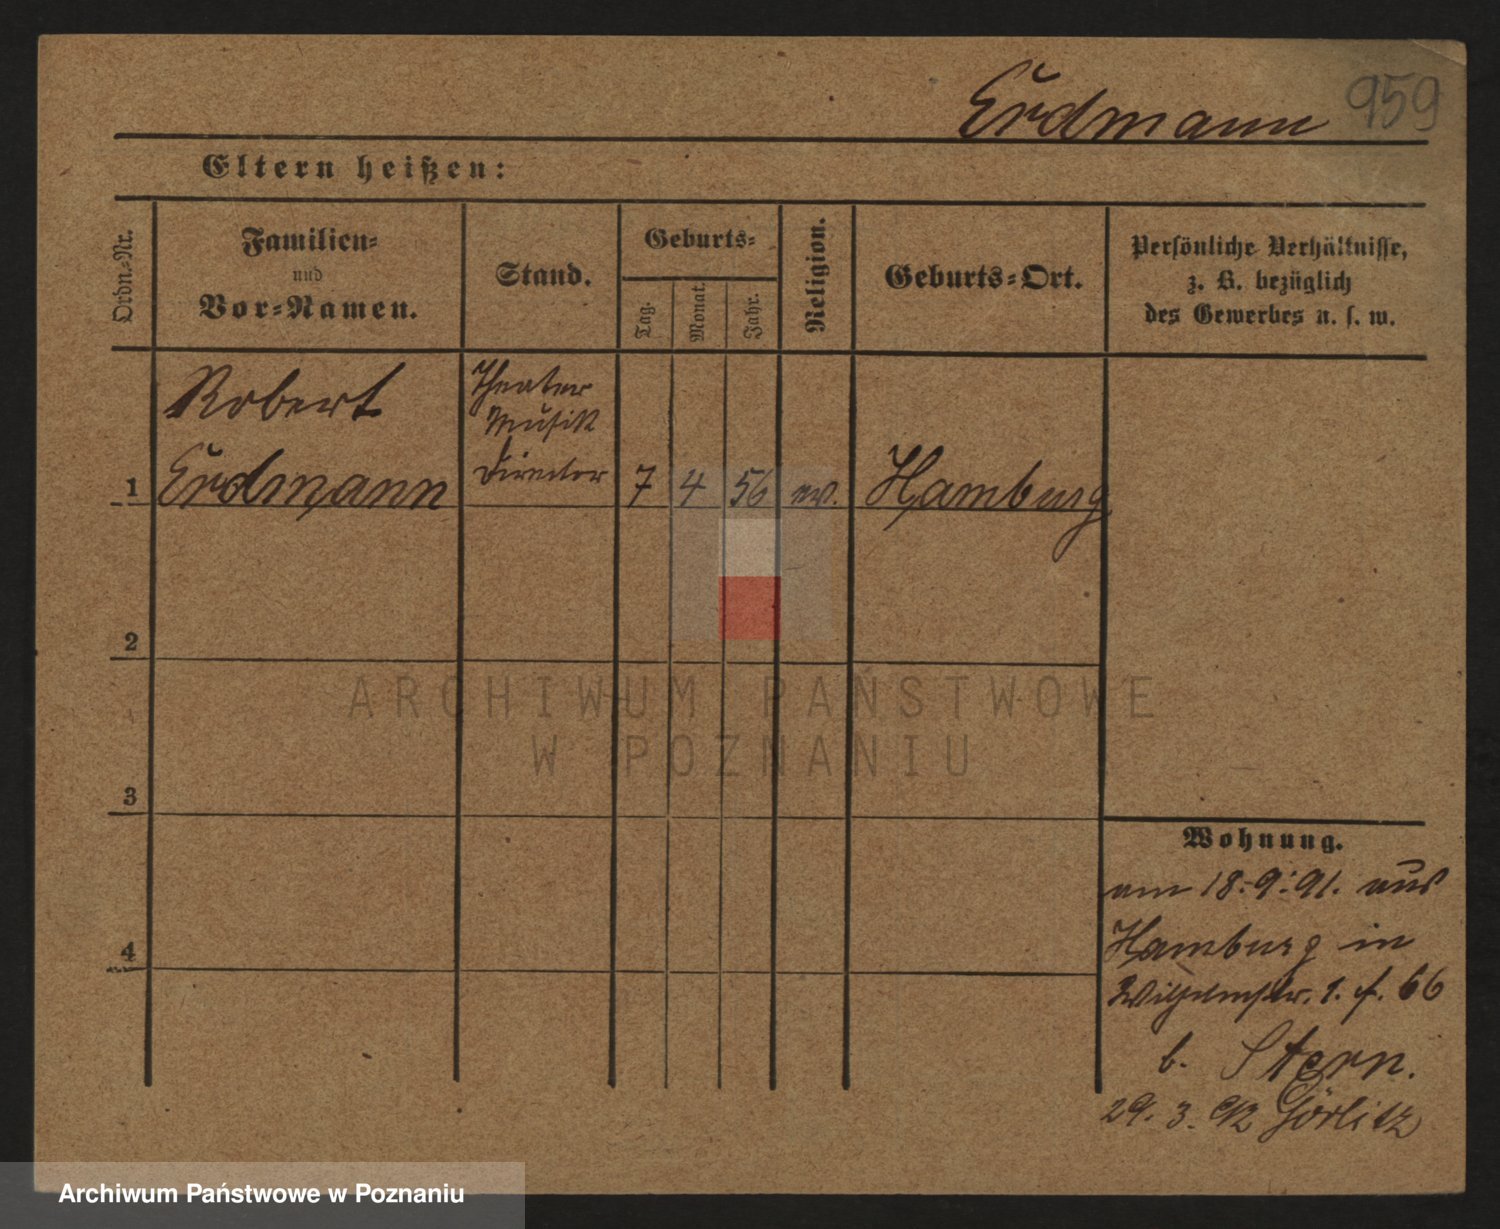 Erdmann 959
Eltern heißen:
Ordn.-Nr.
Familien-
und
Vor-Namen.
Stand.
Geburts-
Tag.
Monat.
Jahr.
Religion.
Geburts-Ort.
Persönliche Verhältnisse,
z. B. bezüglich
des Gewerbes u. s. w.
Robert
Erdmann
Theater
Musik
Director
1
7
4
56
ev.
Hamburg
2
3
4
ARCHIWUM PAŃSTWOWE
W POZNANIU
Wohnung.
am 18.9.91. aus
Hamburg in
Wilhelmstr. 1. f. 66
b. Stern.
29. 3. 92 Görlitz
Archiwum Państwowe w Poznaniu